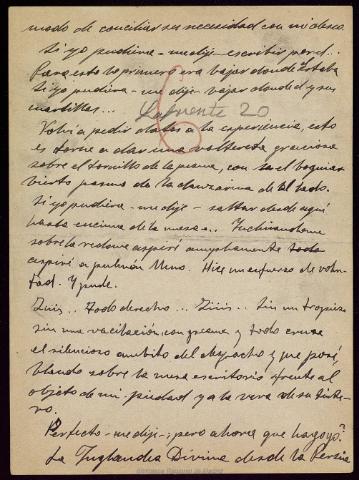 modo de conciliar su necesidad con mi deseo.
Si yo pudiera - me dije - escribir por él..
Para esto lo primero era bajar donde estaba
Si yo pudiera - me dije - bajar donde él y sus
cuartillas...
Lafuente 20
Volví a pedir datos a la experiencia, esto
es torné a dar una voltereta graciosa
sobre el tornillo de la peana, con
de la danzarina de al lado.
Si yo pudiera - me dije - saltar desde aquí
hasta encima de la mesa.. Inclinándome
sobre la redoma aspiré ampliamente todo
aspiré a pulmón lleno. Hice un esfuerzo de volun-
tad. Y pude.
Ziiis.. Todo derecho... Ziiis.. Sin un tropiezo
sin una vacilación, con peana y todo crucé
el silencioso ámbito del despacho y que posé,
blando sobre la mesa escritorio frente al
objeto de mi piedad y a la vera de su tinte-
ro.
Perfecto - me dije -; pero ahora que hago yo?
La Divina desde la
Biblioteca Regional de Madrid